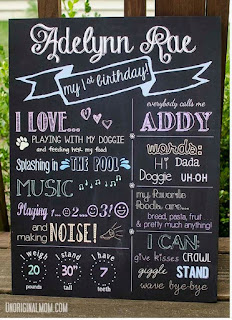 Adelynn Rae
my 1st birthday!
I LOVE...
PLAYING WITH MY DOGGIE
and feeding her my food
Splashing in THE POOL
MUSIC
Playing 1...2...3!
and making NOISE!
I weigh
20
pounds
I stand
30"
tall
I have
7
teeth
everybody calls me
ADDY
words:
Hi Dada
Doggie UH-OH
my favorite
foods are...
bread, pasta, fruit
& pretty much anything!
I CAN:
give kisses CRAWL
giggle STAND
wave bye-bye
UNORIGINALMOM.COM